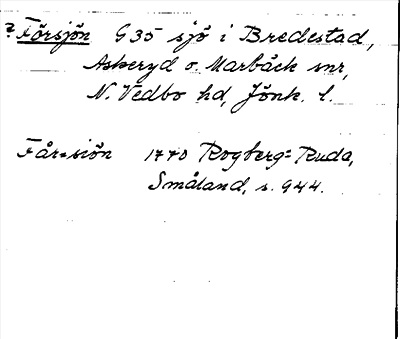 ? Försjön G 35 sjö i Bredestad,
Askeryd o. Marbäck snr,
N. Vedbo hd, Jönk. l.
Får=siön 1770 Rogberg=Ruda,
Småland, s. 944.